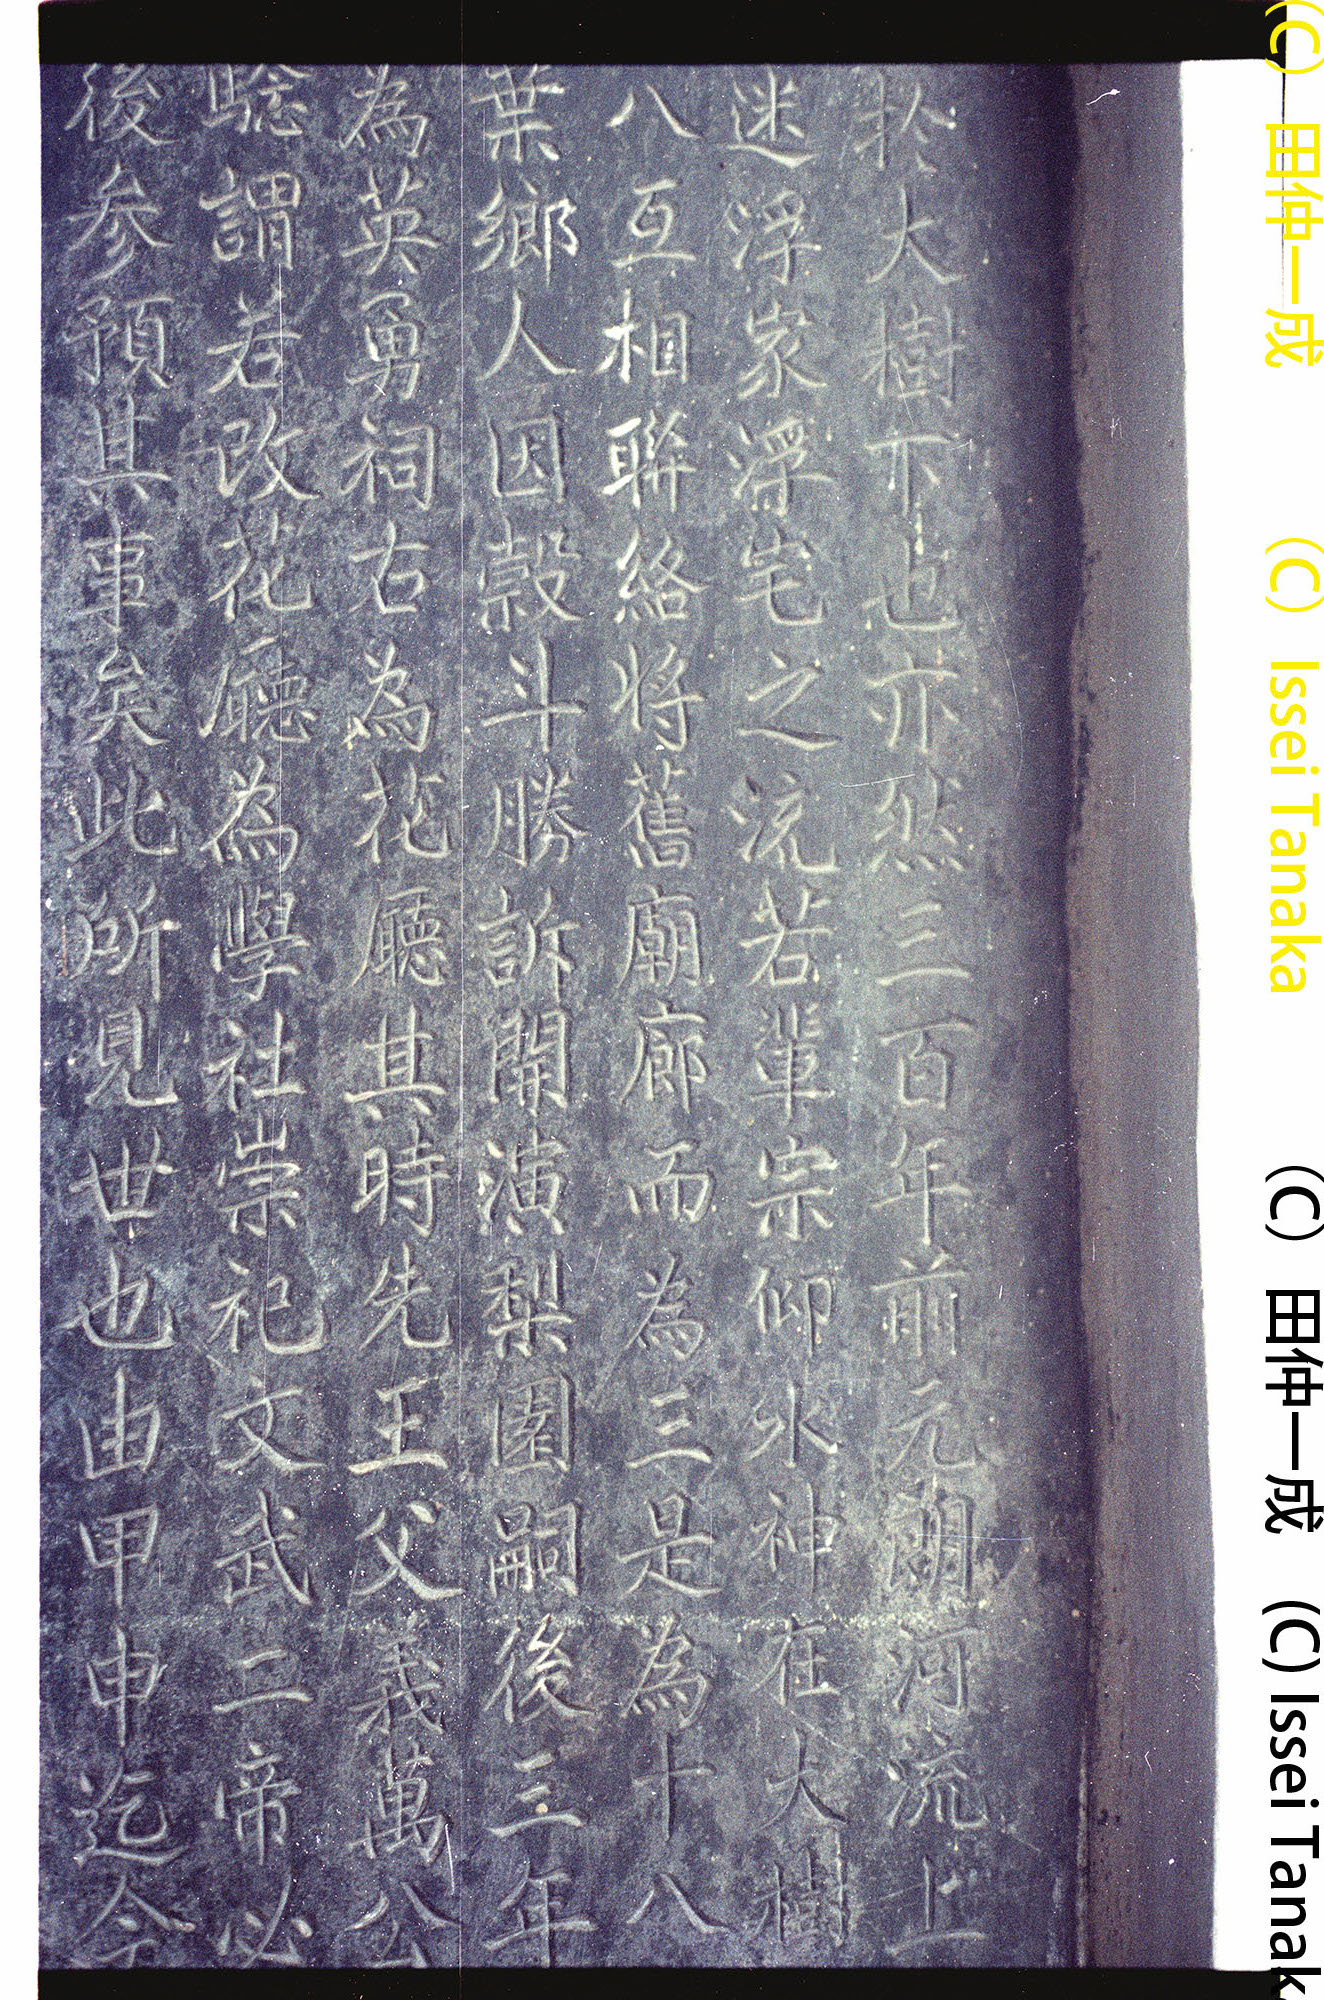 於大樹下也亦然三百年前元朝河流上
迷浮家浮宅之流若輩宗仰水神在大樹
八互相聯絡将舊廟廊而為三是為十八
葉鄉人因穀斗勝訴開演梨園嗣後三年
為英勇祠右為花廳其時先王父義萬公
謂若改花廳為學社崇祀文武二帝必
後参預其事矣此所見世也由甲申迄今
(C) 田仲一成 (C) Issei Tanaka
(C) 田仲一成 (C) Issei Tanak